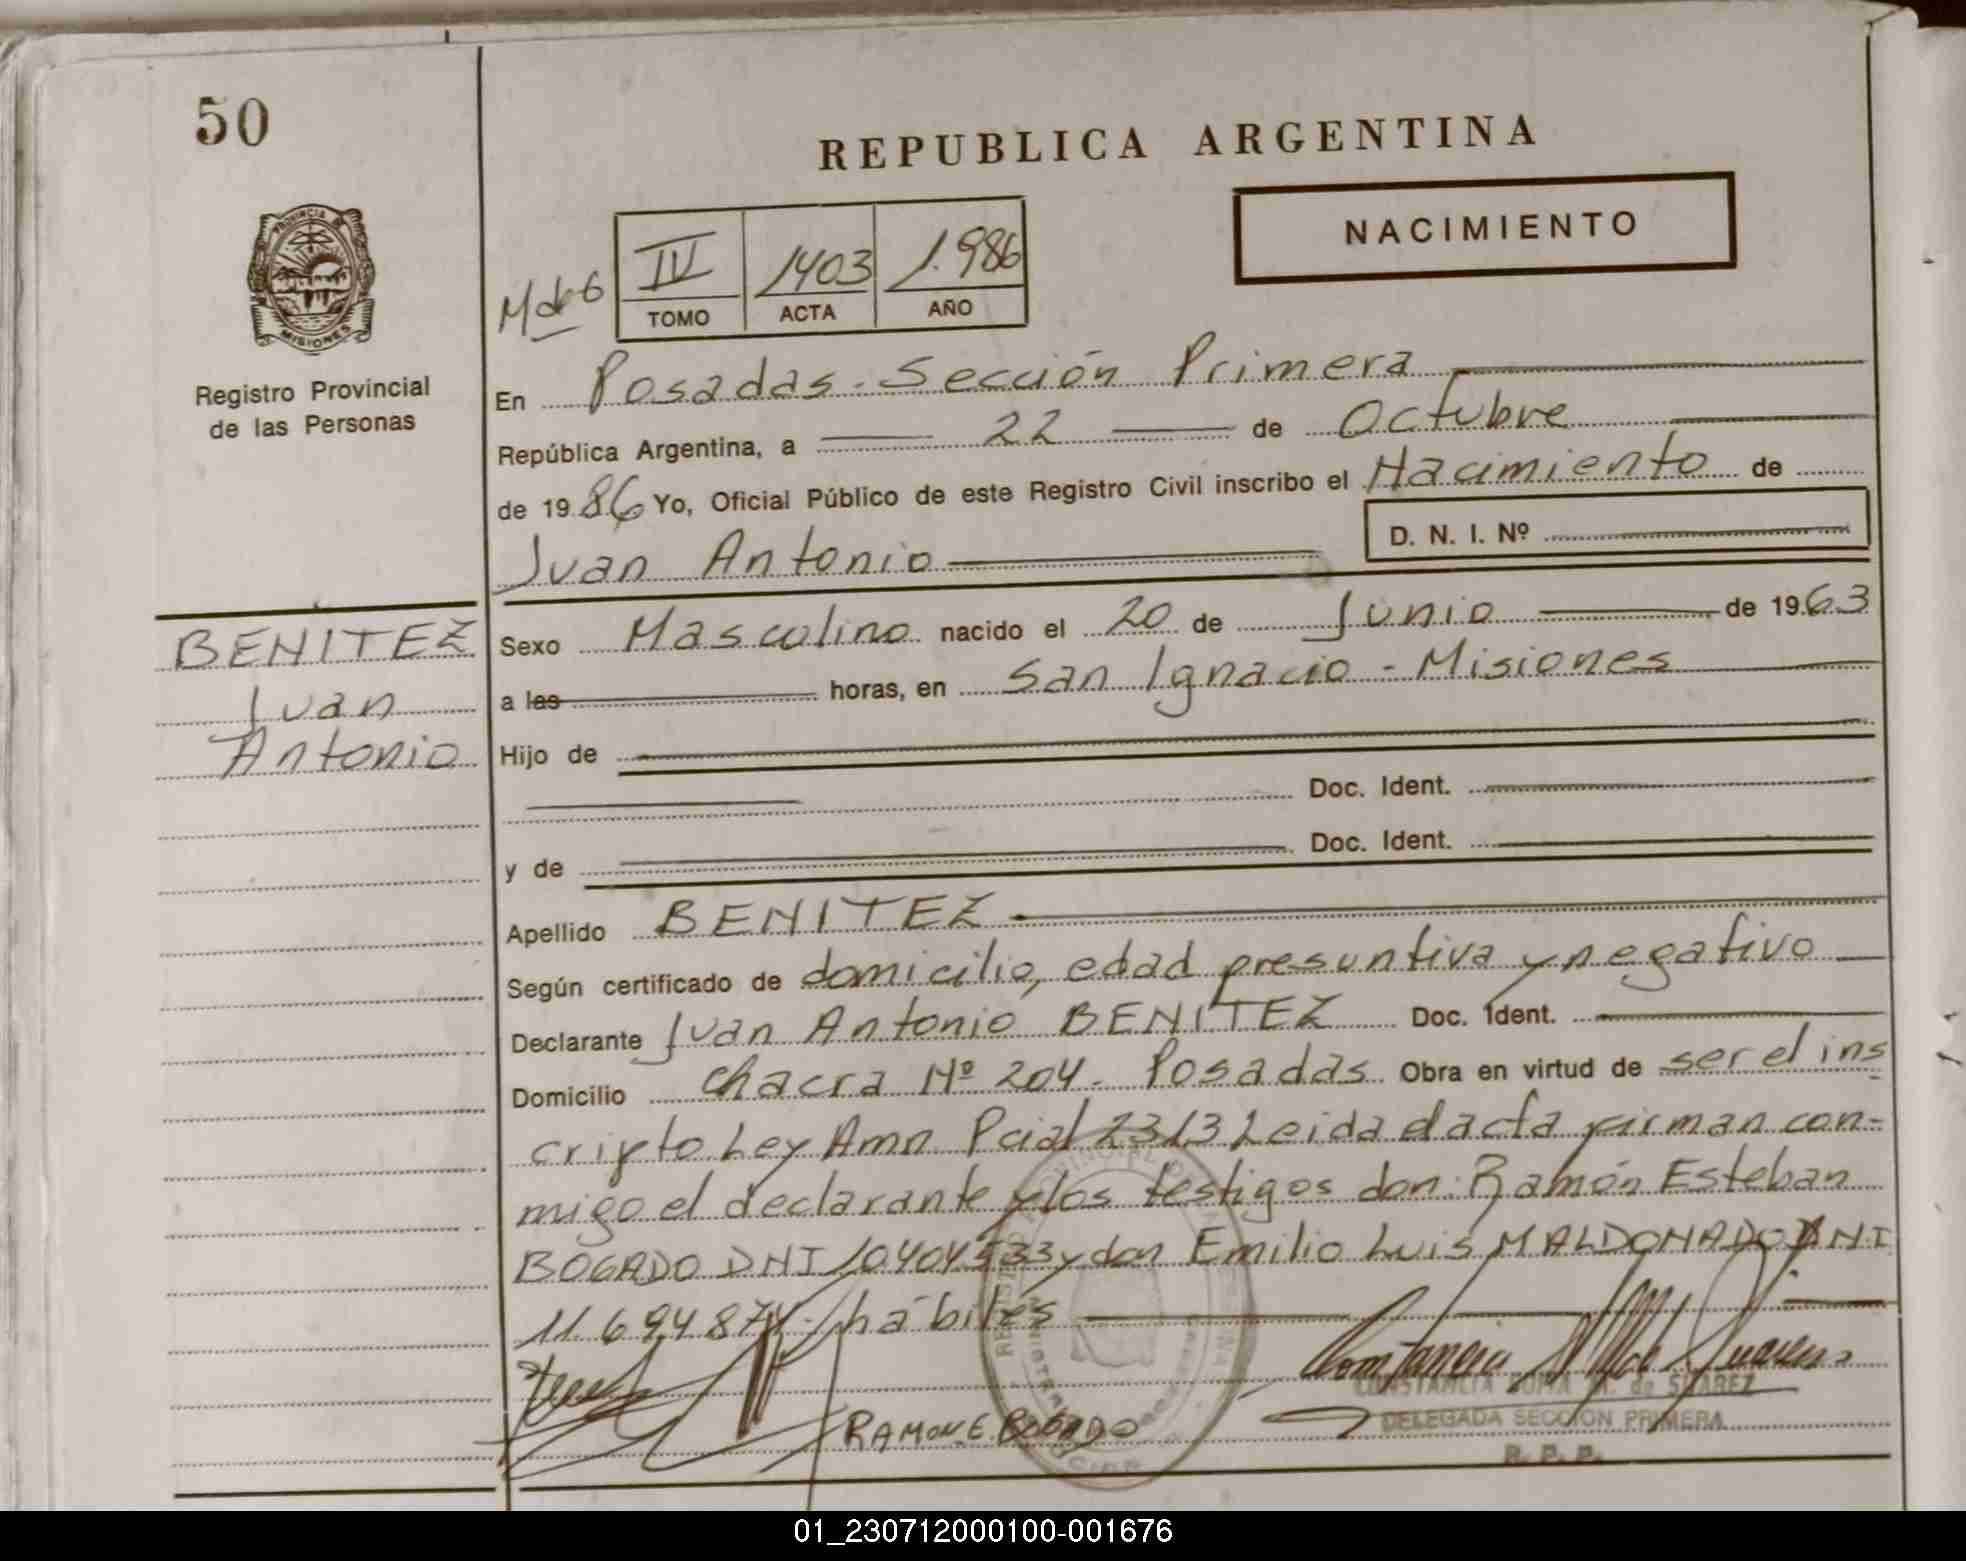 50
REPUBLICA ARGENTINA
NACIMIENTO
PROVINCIA DE
MISIONES
IV 1403 1.986
TOMO ACTA AÑO
Registro Provincial
de las Personas
En Posadas - Sección Primera
República Argentina, a 22 de Octubre
de 1986 Yo, Oficial Público de este Registro Civil inscribo el Nacimiento de
D. N. I. Nº
Juan Antonio
BENITEZ
Juan
Antonio
Sexo Masculino nacido el 20 de Junio de 1963
a las horas, en San Ignacio - Misiones
Hijo de
Doc. Ident.
y de Doc. Ident.
Apellido BENITEZ
Según certificado de domicilio, edad presuntiva y negativo
Declarante Juan Antonio BENITEZ Doc. Ident.
Domicilio Chacra Nº 204 - Posadas Obra en virtud de ser el ins
cripto Ley Amn Pcial 2313 Leida el acta firman con-
migo el declarante y los testigos don: Ramón Esteban
BOGADO DNI 10404533 y don Emilio Luis MALDONADO DNI
11.694.874 - hábiles
RAMON E. BOGADO
CONSTANCIA de SUAREZ
DELEGADA SECCION PRIMERA
R. P. P.
01_230712000100-001676